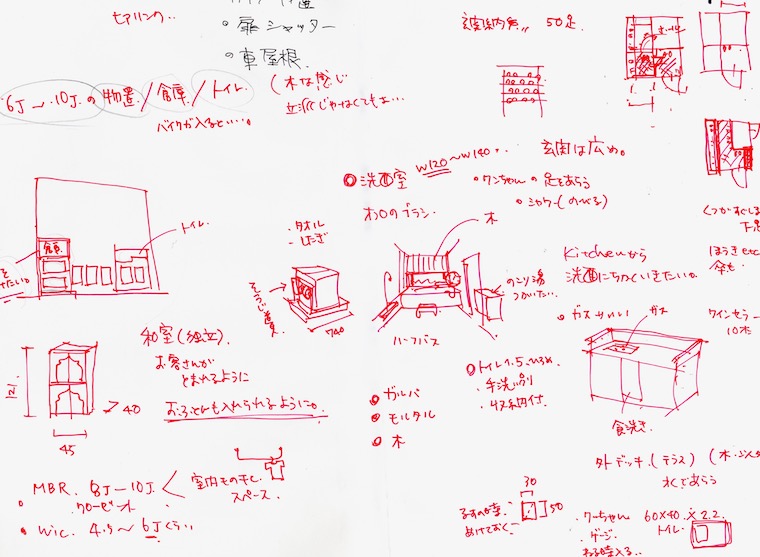 ヒアリング..
・扉シャッター
・車屋根.
6J〜10J.の物置/倉庫/トイレ
(木な感じ
立派じゃなくてもよ...
バイクが入るといい..。
玄関収納 50足.
玄関は広め。
◎洗面室 W120〜W140..
・ワンちゃんの足をあらう
・シャワー(のべる)
木
ハーフバス
のこり湯
つかいたい.
・タオル
740
トイレ
Kitchenから
洗面にちかくいきたい。
ほうきetc
傘も.
ワインセラー
10本
・ガスがいい
ガス
食洗き
和室(独立).
お客さんが
とまれるように
おふとんも入れられるように。
40
45
◎トイレ1.5.ひろめ
・手洗い別
・収納付.
・ガルバ
・モルタル
・木
・MBR. 8J-10J.
クローゼット
室内もの干し
スペース.
・Wic. 4.5〜6Jくらい
外デッキ.(テラス)
水であらう
30
50
るすの時.
あけておく.
・ワーちゃん 60×40.×2.2.
・ゲージ.
トイレ.
ねる時入る..